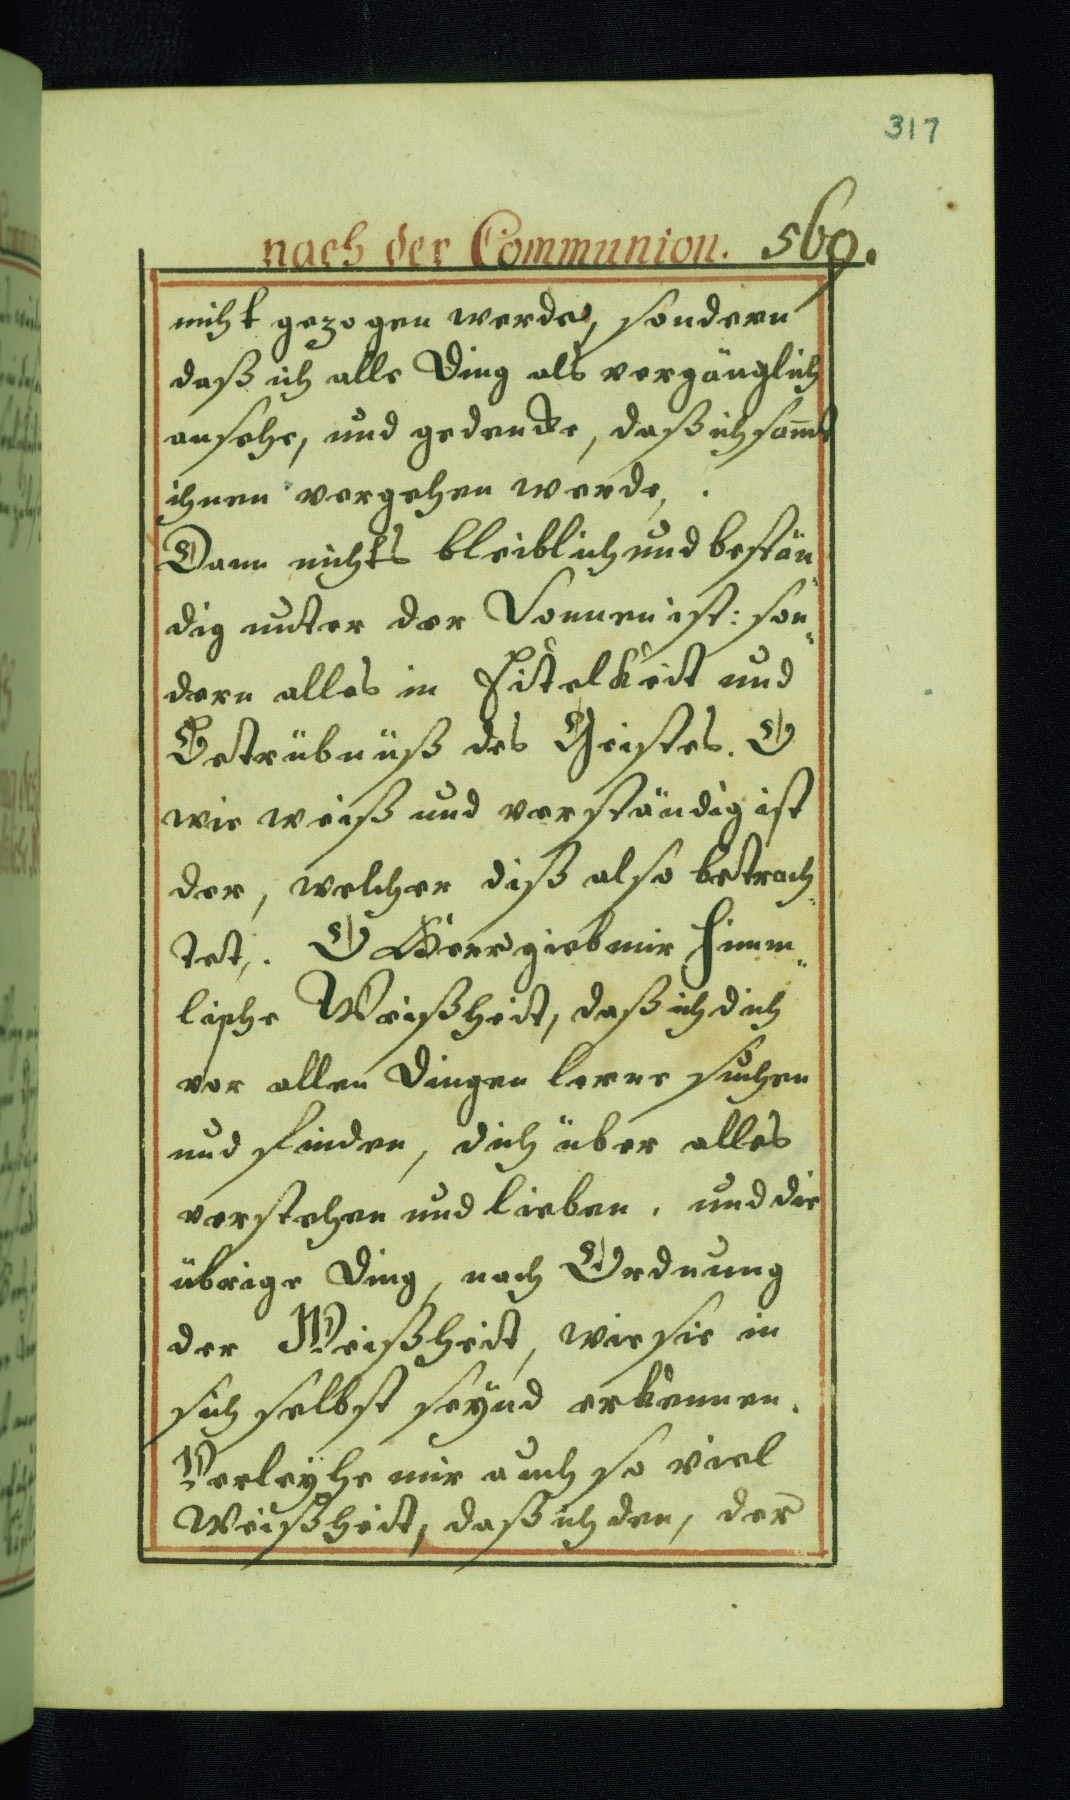 317
nach der Communion. 569.
nicht gezogen werde, sondern
daß ich alle Ding als vergänglich
ansehe, und gedencke, daß ich sam̄t
ihnen vergehen werde,.
Dann nichts bleiblich und bestän„
dig unter der Sonnen ist: son„
dern alles in Eitelkeit und
Betrübnüß des Geistes. O
wie weiß und verständig ist
der, welcher diß also betrach„
tet,. O Herr gieb mir himm„
lische Weißheit, daß ich dich
vor allen Dingen lerne suchen
und finden, dich über alles
verstehen und lieben, und die
übrige Ding, nach Ordnung
der Weißheit, wie sie in
sich selbst seÿnd erkennen.
Verleÿhe mir auch so viel
Weißheit, daß ich den, der